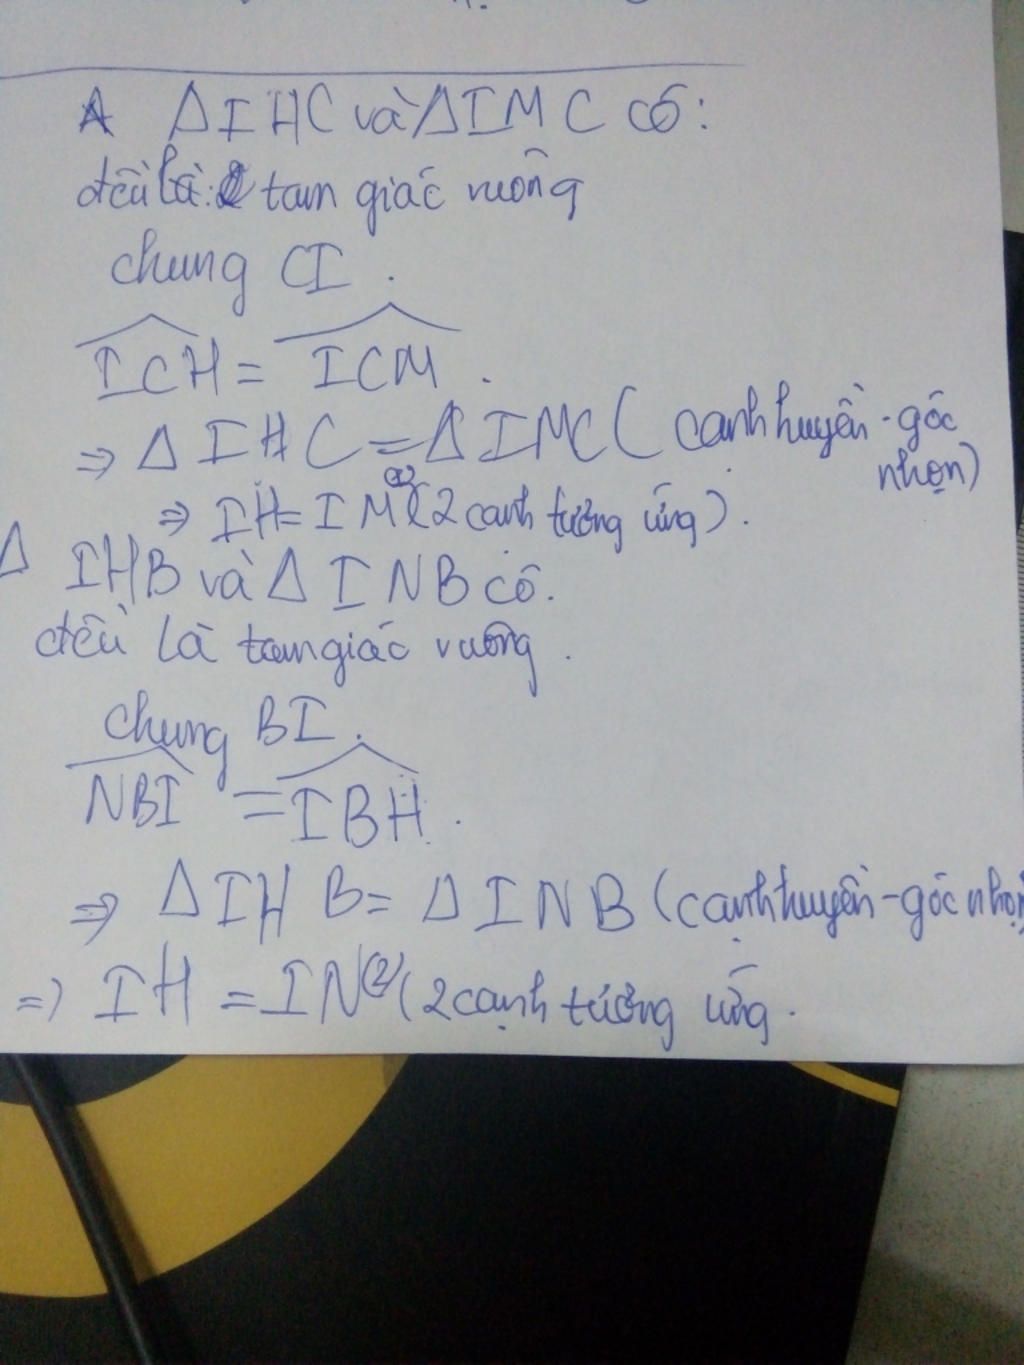 ΔIHC và ΔIMC có:
đều là: 2 tam giác vuông
chung CI.
ICH = ICM.
⇒ ΔIHC = ΔIMC (cạnh huyền - góc
nhọn)
⇒ IH = IM (1) (2 cạnh tương ứng).
Δ IHB và Δ INB có.
đều là tam giác vuông.
chung BI.
NBI = IBH.
⇒ ΔIHB = ΔINB (cạnh huyền - góc nhọn
=) IH = IN (2) (2 cạnh tương ứng.